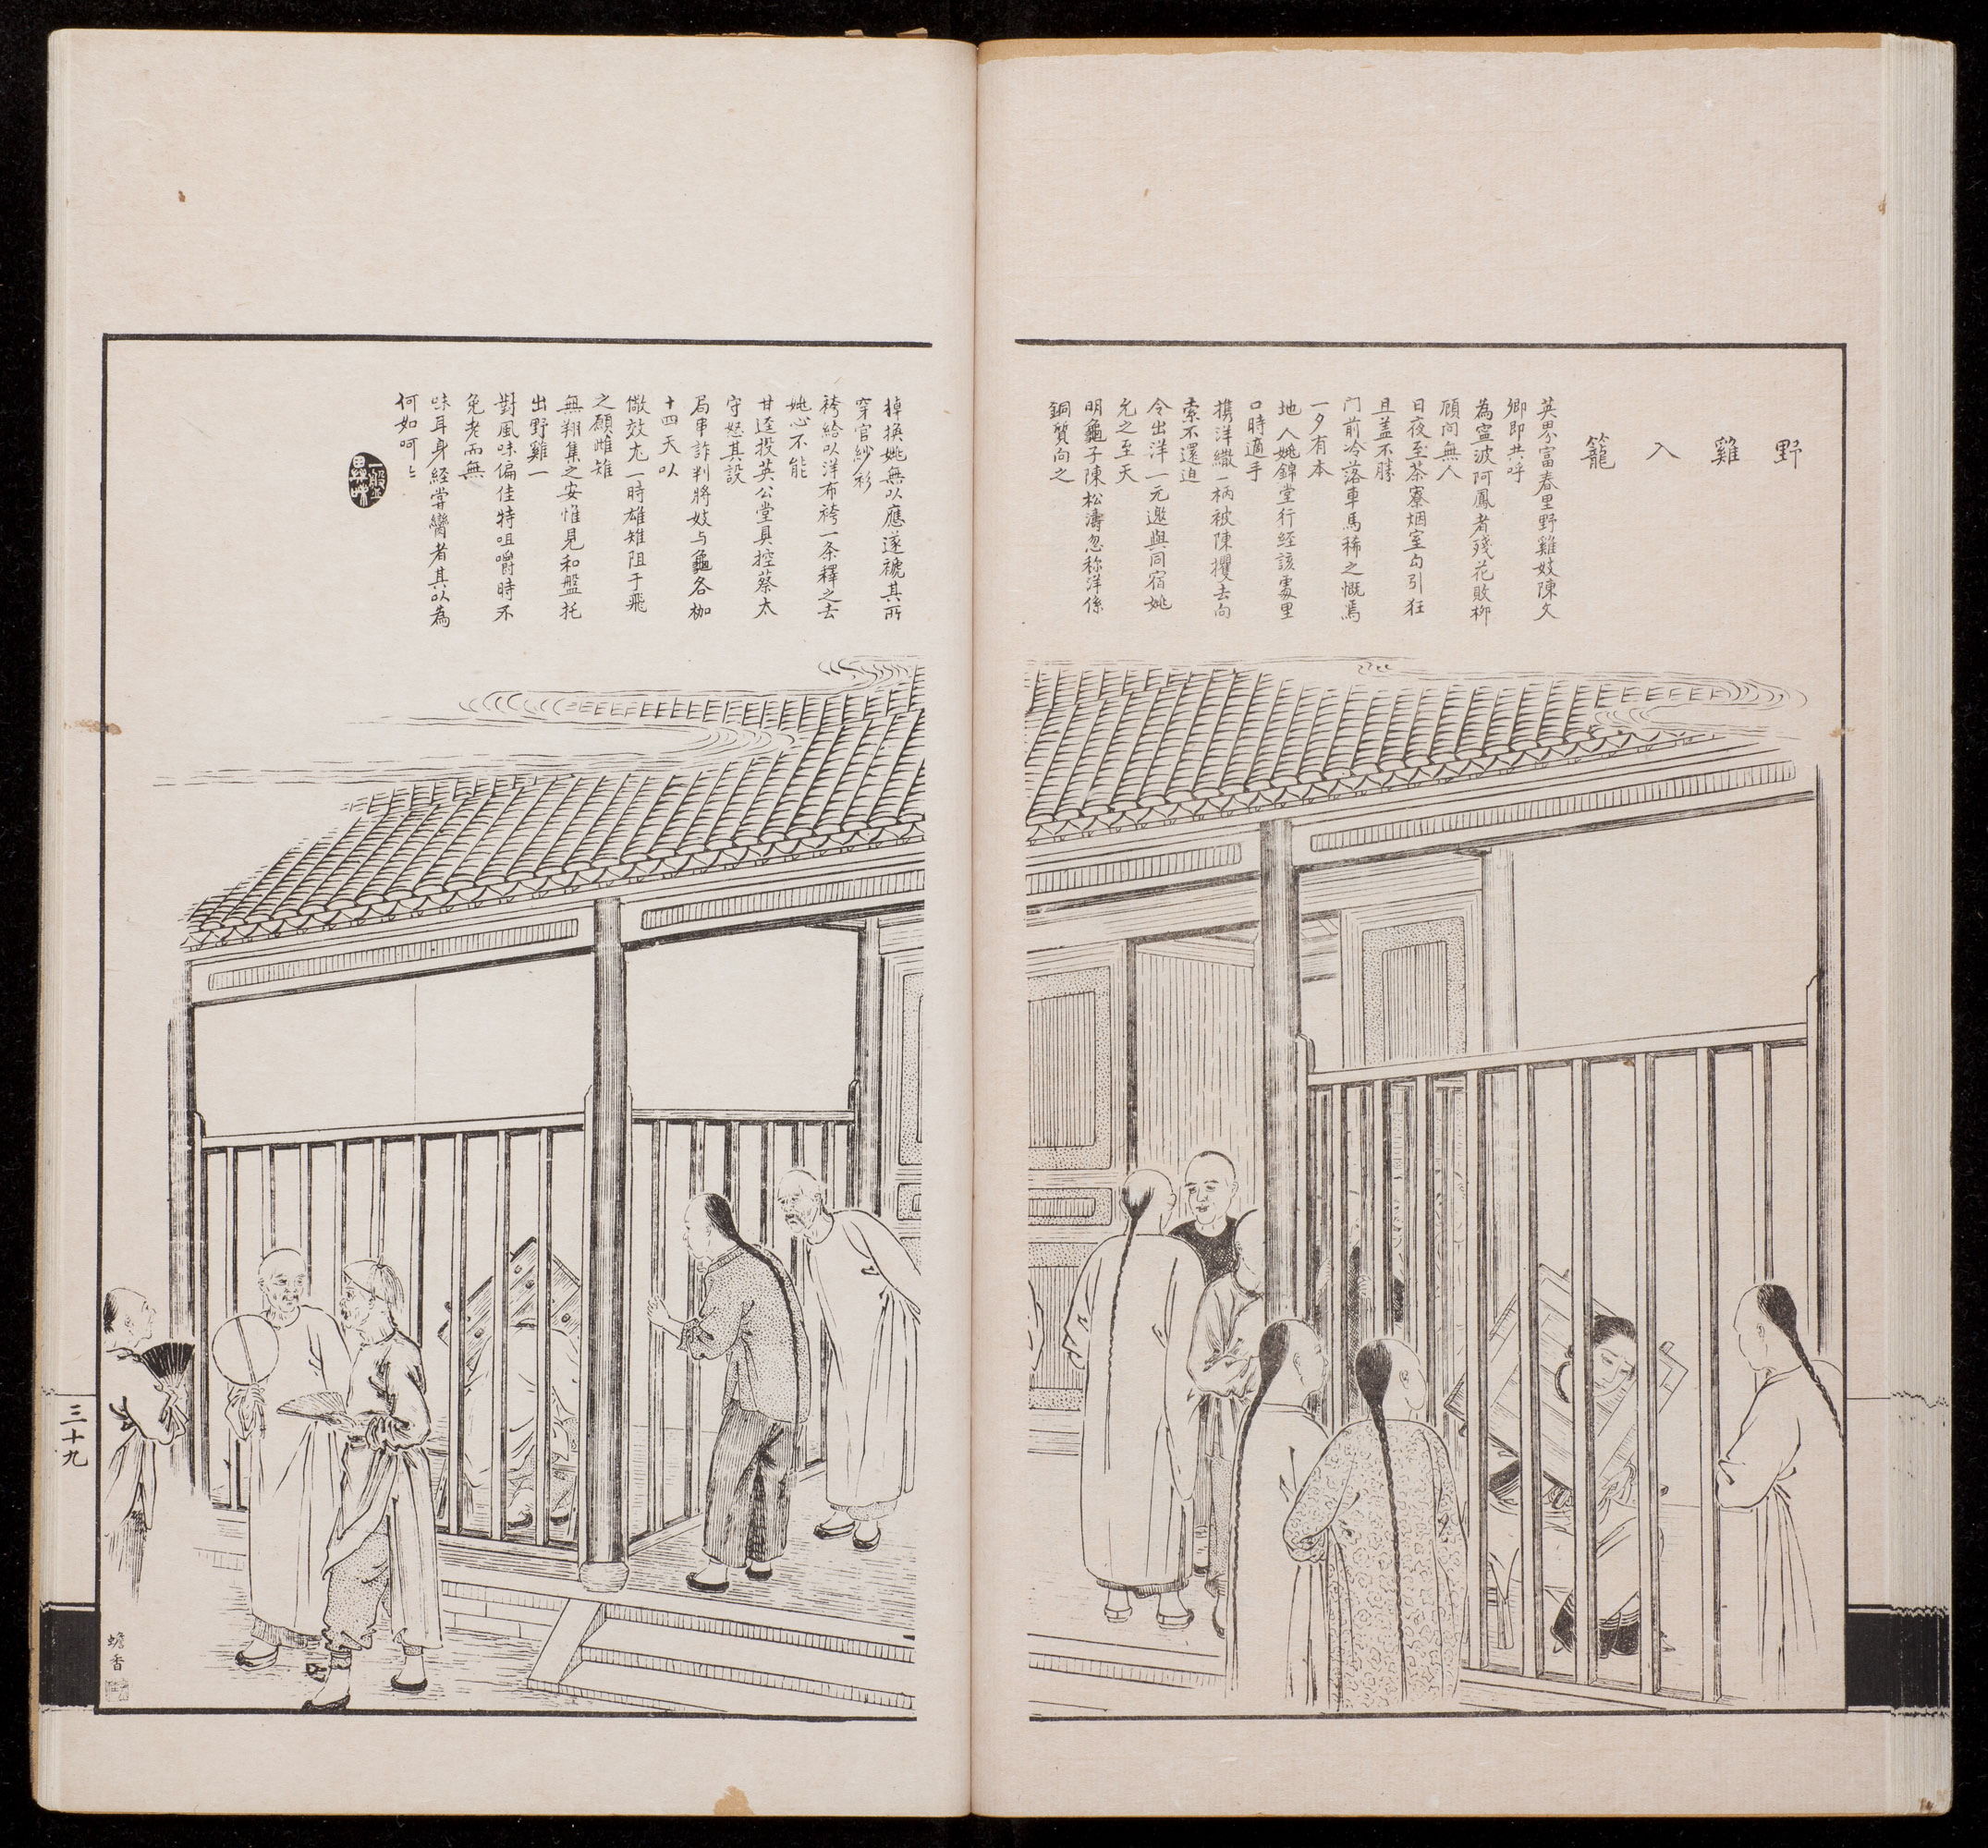 野雞入籠
英界富春里野雞妓陳文
卿即共呼
為寧波阿鳳者殘花敗柳
顧問無人
日夜至茶寮烟室勾引狂
且蓋不勝
門前冷落車馬稀之慨焉
一夕有本
地人姚錦堂行経該處里
口時適手
携洋繖一柄被陳攫去向
索不還迫
令出洋一元邀與同宿姚
允之至天
明龜子陳松濤忽称洋係
銅質向之
掉換姚無以應遂褫其所
穿官紗衫
袴給以洋布袴一条釋之去
姚心不能
甘逕投英公堂具控蔡太
守怒其設
局串詐判將妓与龜各枷
十四天以
儆效尤一時雄雉阻于飛
之願雌雉
無翔集之安惟見和盤托
出野雞一
對風味偏佳特咀嚼時不
免老而無
味耳身経嘗臠者其以為
何如呵〻
三十九
蟾香